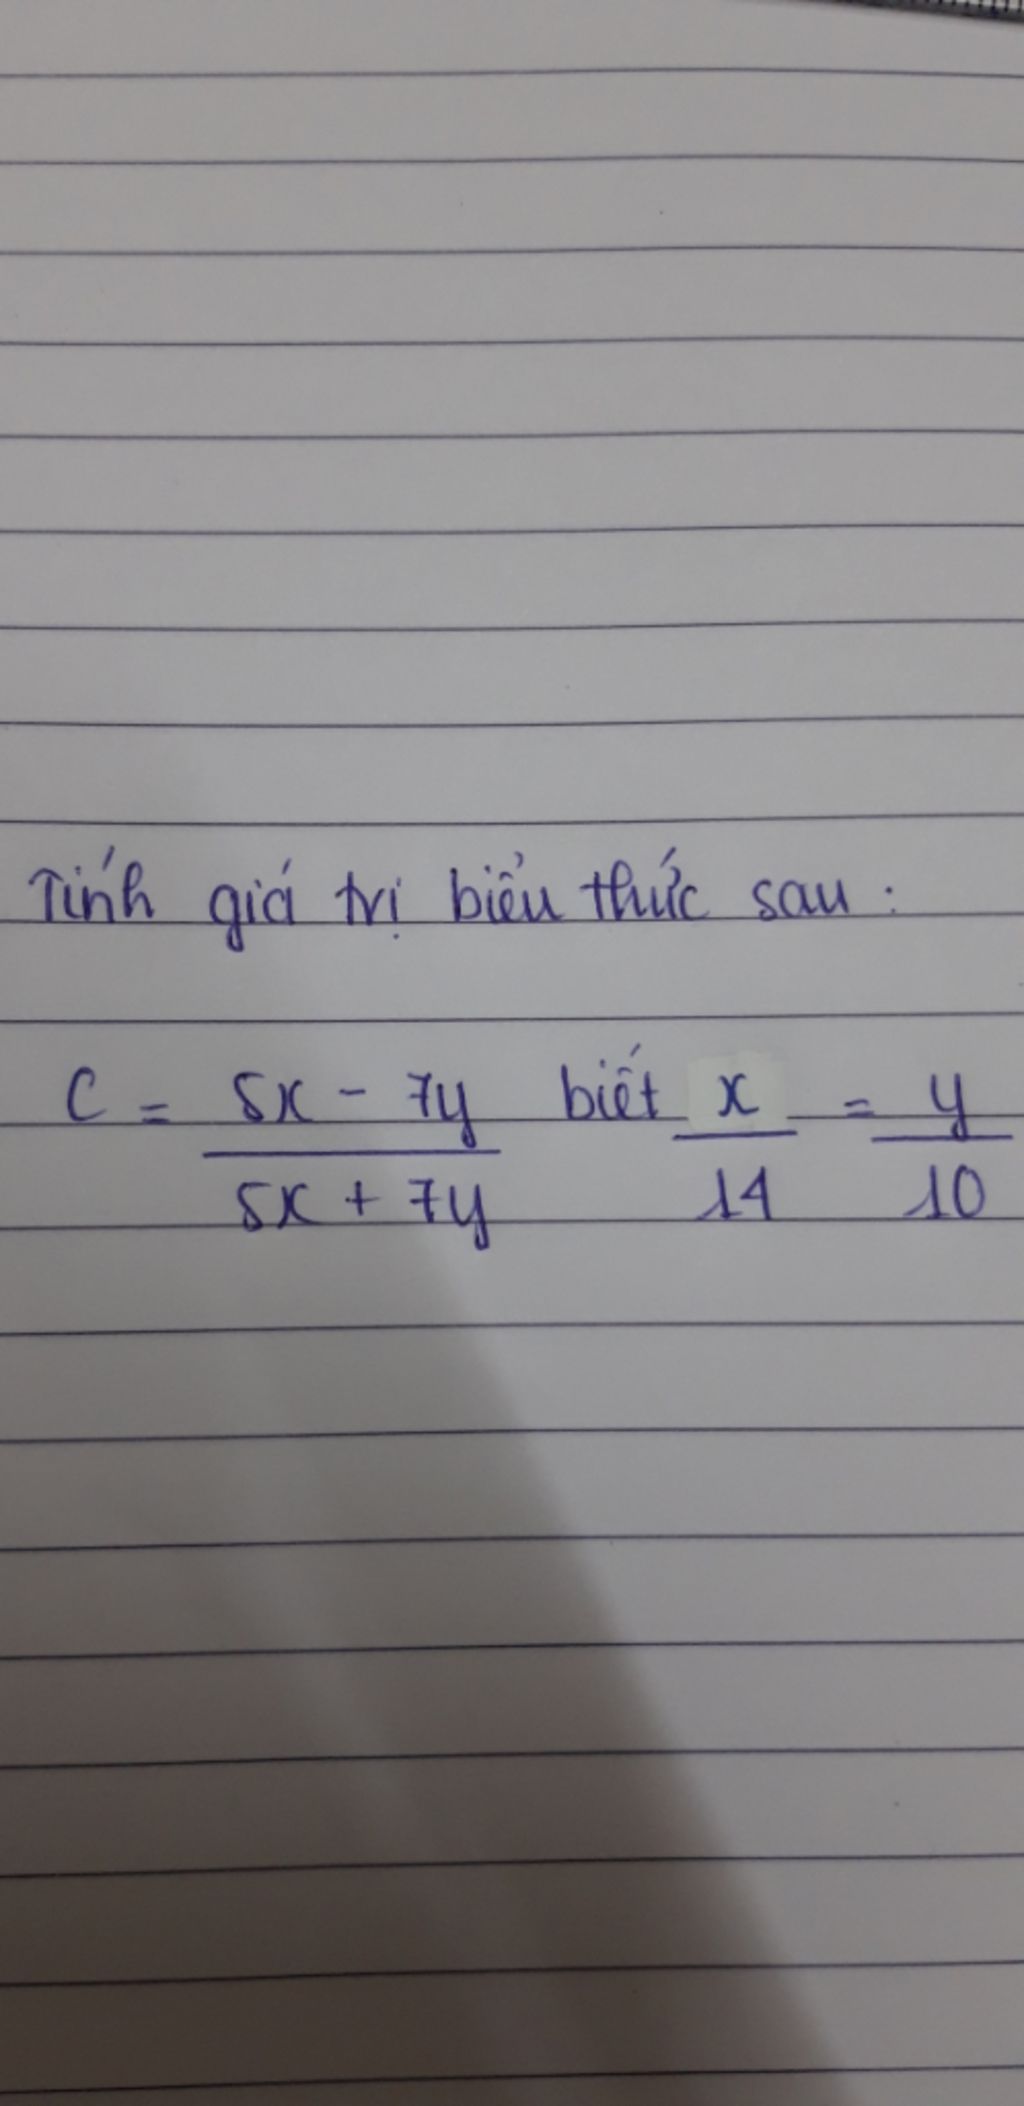 Tính giá trị biểu thức sau :
C = 5x - 7y / 5x + 7y biết x / 14 = y / 10